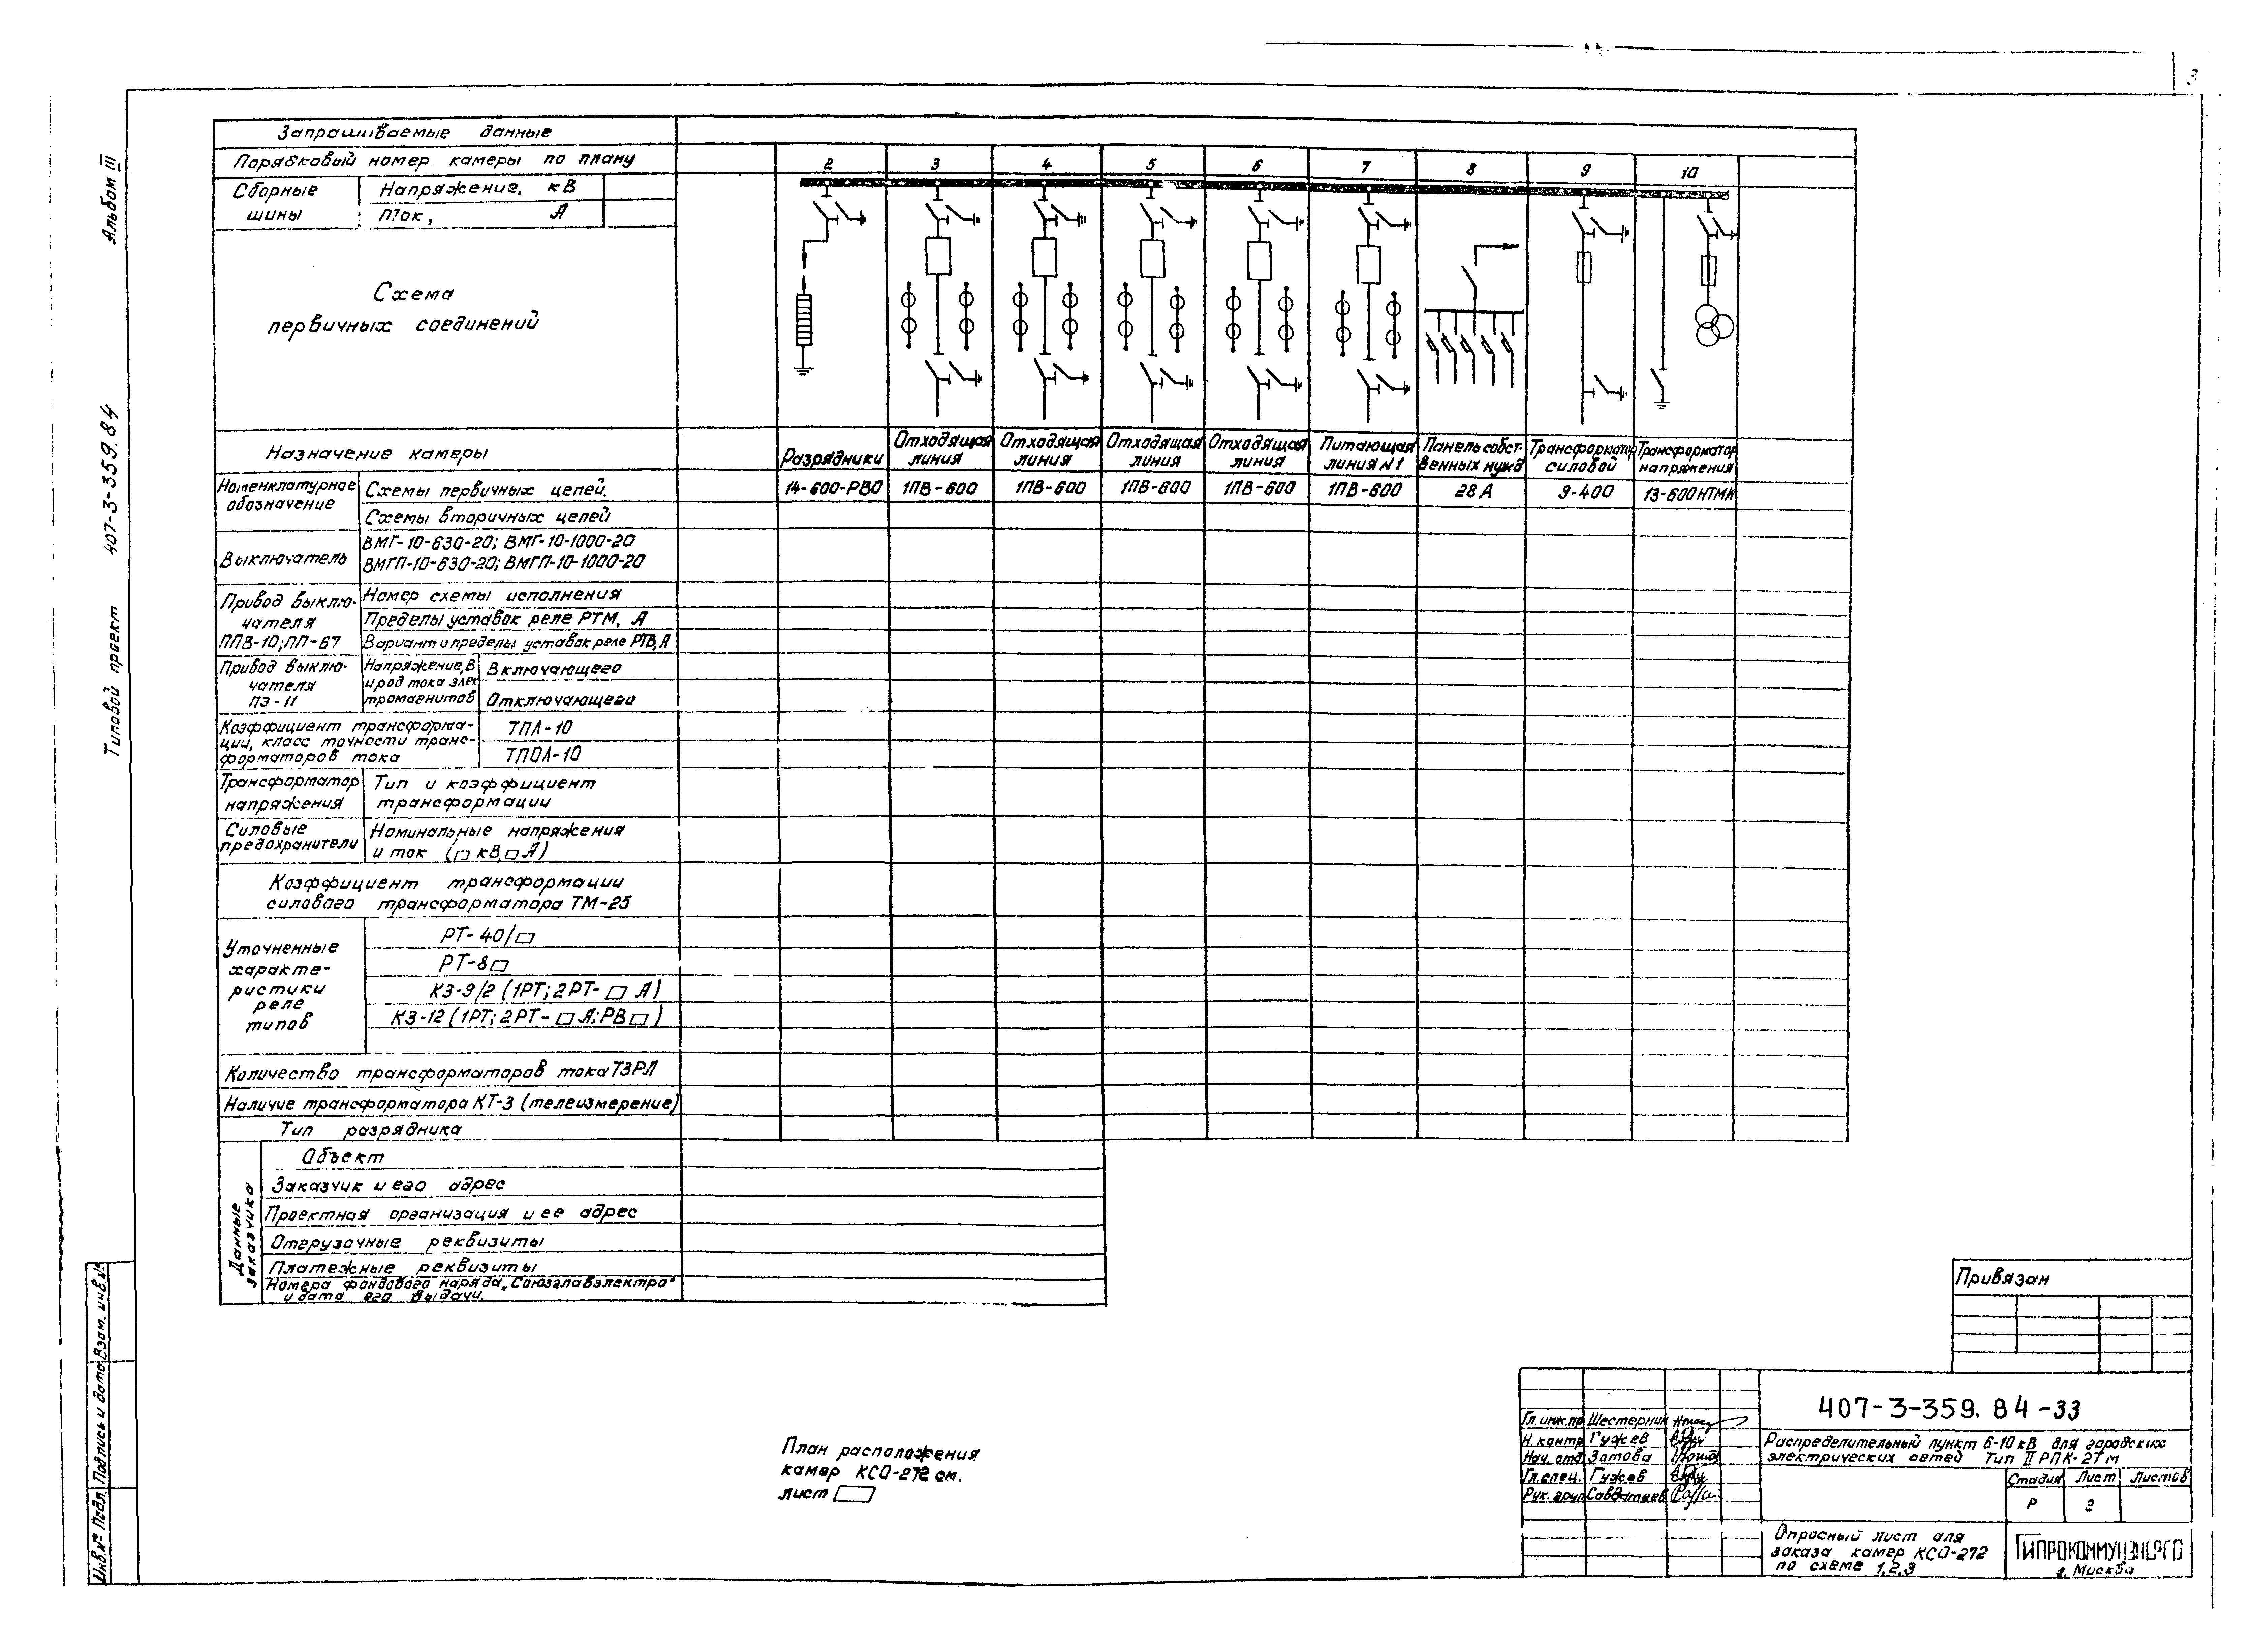 3
Альбом III
Типовой проект 407-3-359.84
Запрашиваемые данные
Порядковый номер камеры по плану
2 3 4 5 6 7 8 9 10
Сборные шины
Напряжение, кВ
Ток, А
Схема
первичных соединений
Назначение камеры
Разрядники
Отходящая линия
Отходящая линия
Отходящая линия
Отходящая линия
Питающая линия №1
Панель собст-
венных нужд
Трансформатор
силовой
Трансформатор
напряжения
Номенклатурное
обозначение
Схемы первичных цепей.
14-600-РВО 1ПВ-600 1ПВ-600 1ПВ-600 1ПВ-600 1ПВ-600 28А 9-400 13-600НТМИ
Схемы вторичных цепей
Выключатель
ВМГ-10-630-20; ВМГ-10-1000-20
ВМГП-10-630-20; ВМГП-10-1000-20
Привод выклю-
чателя
ППВ-10; ПП-67
Номер схемы исполнения
Пределы уставок реле РТМ, А
Вариант и пределы уставок реле РТВ, А
Привод выклю-
чателя
ПЭ-11
Напряжение, В
и род тока элек
тромагнитов
Включающего
Отключающего
Коэффициент трансформа-
ции, класс точности транс-
форматоров тока
ТПЛ-10
ТПОЛ-10
Трансформатор
напряжения
Тип и коэффициент
трансформации
Силовые
предохранители
Номинальные напряжения
и ток (□ кВ, □ А)
Коэффициент трансформации
силового трансформатора ТМ-25
Уточненные
характе-
ристики
реле
типов
РТ-40/□
РТ-8□
КЗ-9/2 (1РТ; 2РТ- □ А)
КЗ-12 (1РТ; 2РТ- □ А; РВ □)
Количество трансформаторов тока ТЗРЛ
Наличие трансформатора КТ-3 (телеизмерение)
Тип разрядника
Данные
заказчика
Объект
Заказчик и его адрес
Проектная организация и ее адрес
Отгрузочные реквизиты
Платежные реквизиты
Номера фондового наряда „Союзглавэлектро"
и дата его выдачи.
План расположения
камер КСО-272 см.
лист □
Привязан
407-3-359.84-33
Гл. инж. пр Шестернин
Н. контр Гужев
Нач. отд. Зотова
Гл. спец. Гужев
Рук. груп
Распределительный пункт 6-10 кВ для городских
электрических сетей Тип II РПК-2Тм
Стадия Лист Листов
Р 2
Опросный лист для
заказа камер КСО-272
по схеме 1,2,3
ГИПРОКОММУНЭНЕРГО
г. Москва
Инв. № подл. Подпись и дата Взам. инв. №